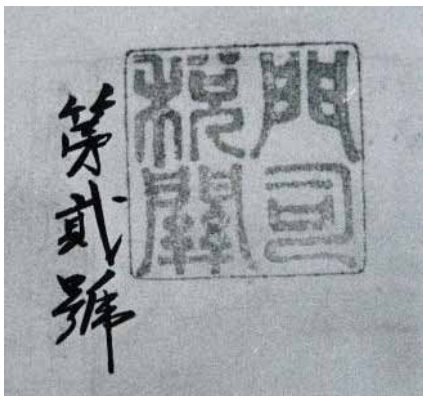 門司
税關
第貳號